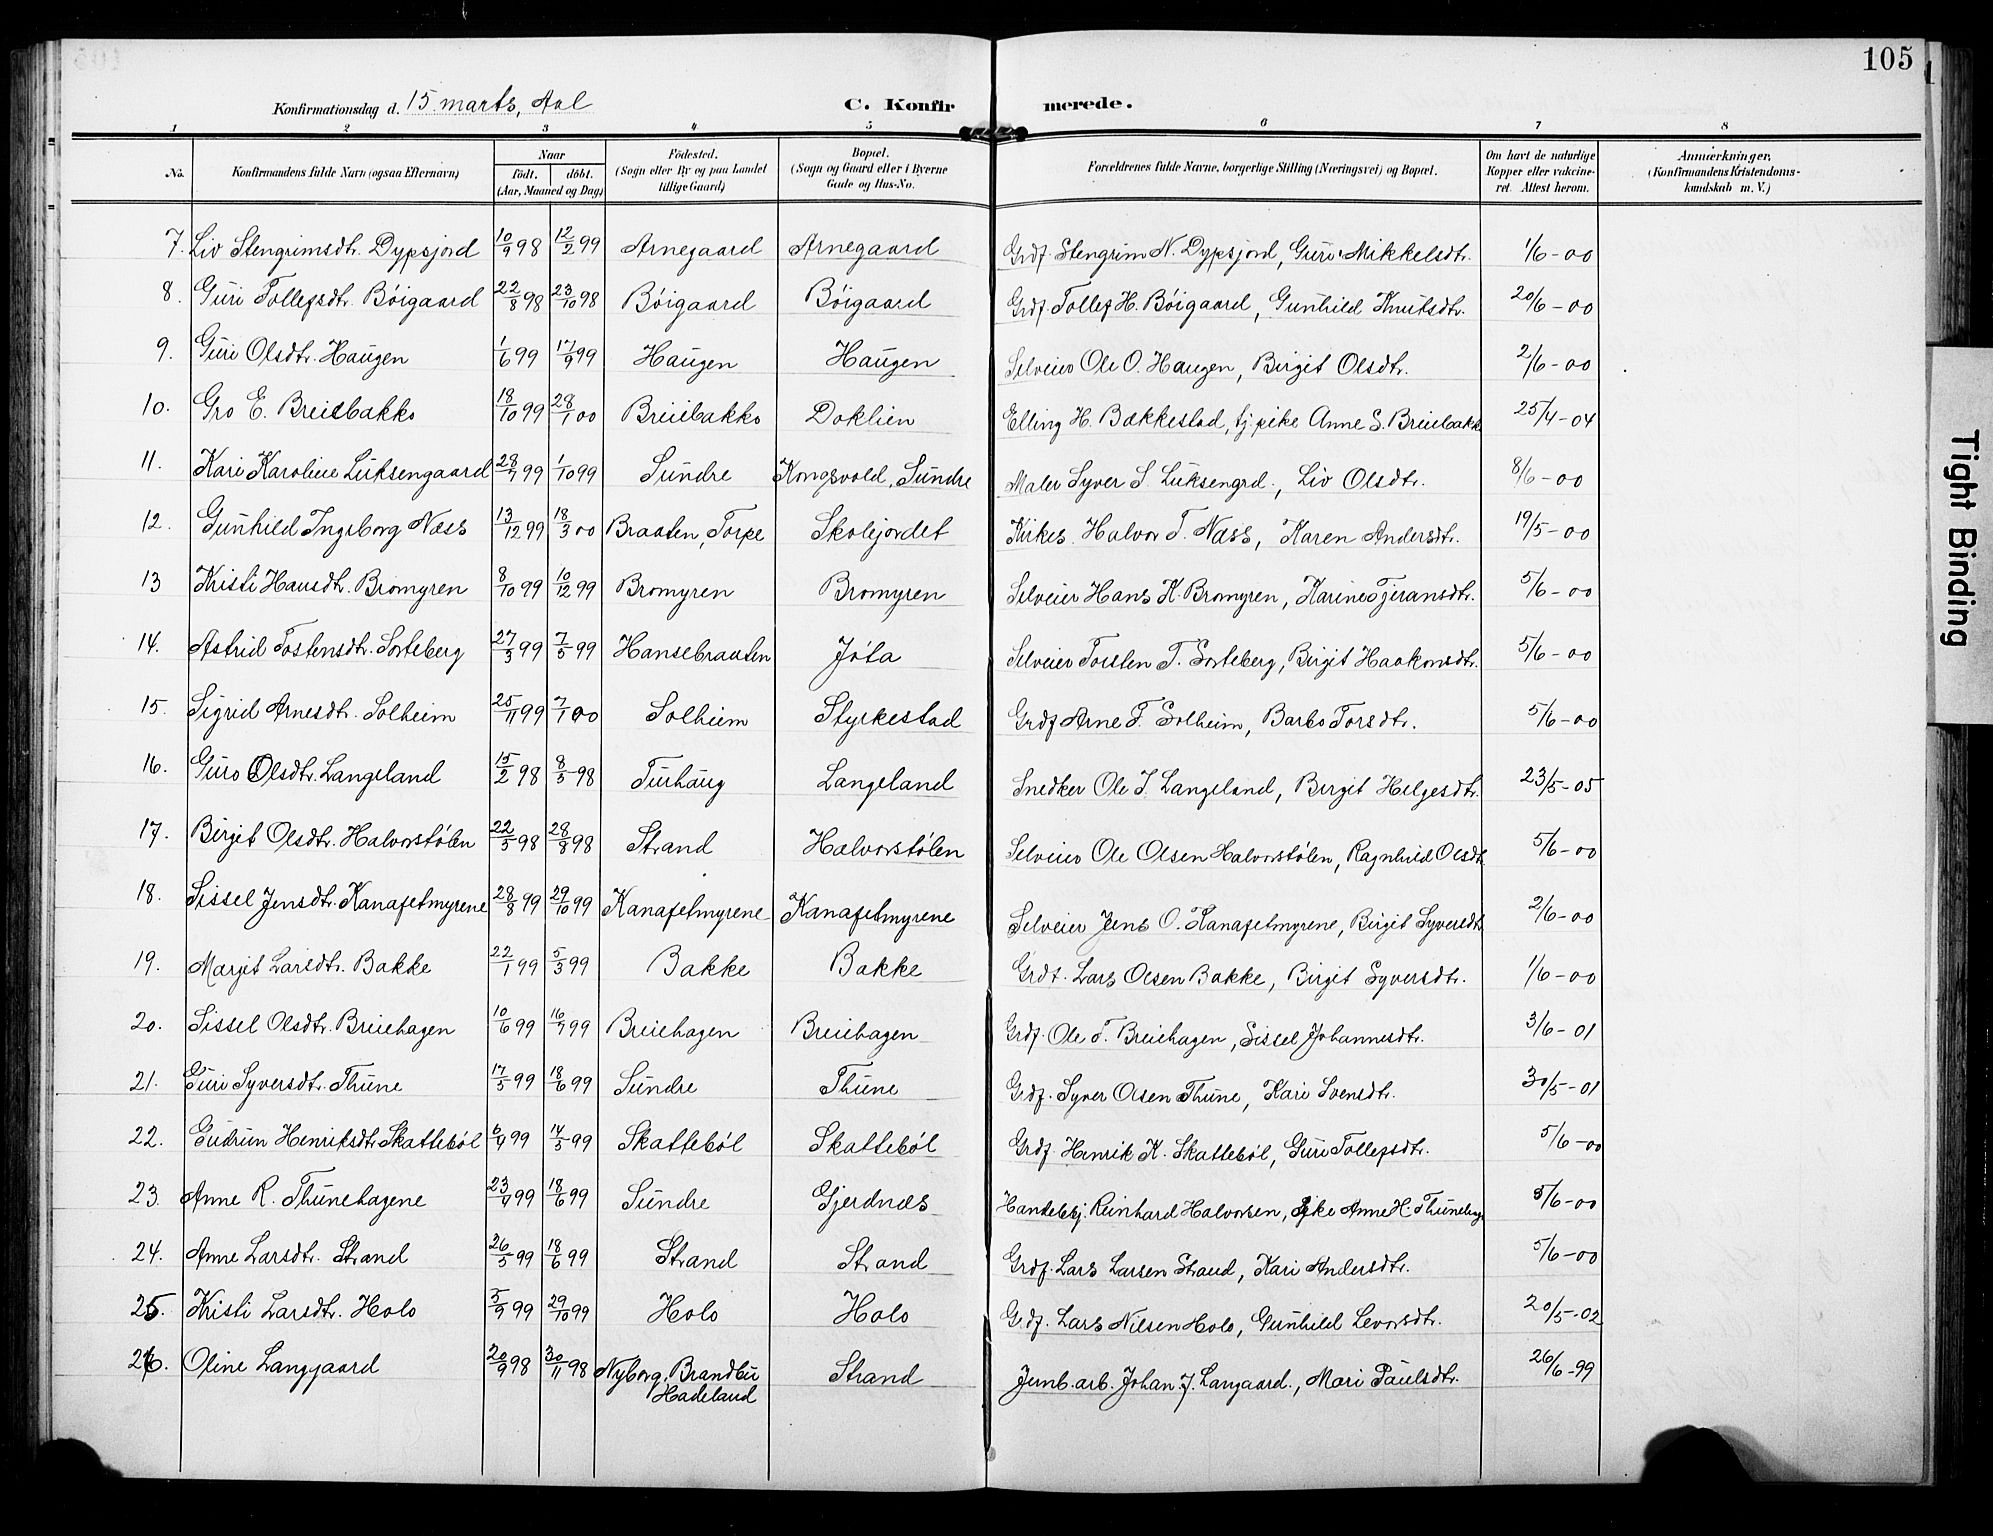 105
Konfirmationsdag d. 15. marts, Aal C. Konfirmerede.
1 2 3 4 5 6 7 8
No. Konfirmandens fulde Navn (ogsaa Efternavn) Naar født. døbt. (Aar, Maaned og Dag) Fødested. (Sogn eller By og paa Landet tillige Gaard) Bopæl. (Sogn og Gaard eller i Byerne Gade og Hus-No. Forældrenes fulde Navne, borgerlige Stilling (Næringsvei) og Bopæl. Om havt de naturlige Kopper eller vakcineret. Attest herom. Anmærkninger. (Konfirmandens Kristendomskundskab m. V.)
7. Liv Stengrimsdtr. Dypsjord 10/9 98 12/2 99 Arnegaard Arnegaard Grdf. Stengrim N. Dypsjord, Guri Mikkelsdtr. 1/6-00
8. Guri Tollefsdtr. Böigaard 22/8 98 23/10 98 Böigaard Böigaard Grdf. Tollef H. Böigaard, Gunhild Knutsdtr. 20/6-00
9. Guri Olsdtr. Haugen 1/6 99 17/9 99 Haugen Haugen Selveier Ole O. Haugen, Birgit Olsdtr. 2/6-00
10. Gro E. Breiebakko 18/10 99 28/1 00 Breiebakko Doklien Elling H. Bakkestad, tj. pike Anne S. Breiebakk 25/4-04
11. Kari Karoline Luksengaard 28/7 99 1/10 99 Sundre Kongsvold, Sundre Maler Syver S. Luksengrd., Liv Olsdtr. 8/6-00
12. Gunhild Ingeborg Næss 13/12 99 18/3 00 Braaten, Torpe Skolejordet Kirkes. Halvor T. Næss, Karen Andersdtr. 19/5-00
13 Kristi Hansdtr. Bromyren 8/10 99 10/12 99 Bromyren Bromyren Selveier Hans K. Bromyren, Karine Tjeransdtr. 5/6-00
14. Astrid Tostensdtr. Sorteberg 27/3 99 7/5 99 Hansebraaten Jóta Selveier Torsten T. Sorteberg, Birgit Haakonsdtr. 5/6-00
15. Sigrid Arnesdtr. Solheim 25/11 99 7/1 00 Solheim Styrkestad Grdf Arne T. Solheim, Barbo Torsdtr. 5/6-00
16. Guro Olsdtr. Langeland 15/2 98 8/5 98 Turhaug Langeland Snedker Ole J. Langeland, Birgit Helgesdtr. 23/5-05
17. Birgit Olsdtr. Halvorstølen 22/5 98 28/8 98 Strand Halvorstølen Selveier Ole Olsen Halvorstølen, Ragnhild Olsdt 5/6-00
18. Sissel Jensdtr. Kanafetmyrene 28/8 99 29/10 99 Kanafetmyrene Kanafetmyrene Selveier Jens O. Kanafetmyrene, Birgit Syversdt 2/6-00
19. Margit Larsdtr. Bakke 22/1 99 5/3 99 Bakke Bakke Grdf. Lars Olsen Bakke, Birgit Syversdtr. 1/6-00
20. Sissel Olsdtr. Breiehagen 10/6 99 16/7 99 Breiehagen Breiehagen Grdf. Ole T. Breiehagen, Sissel Johannesdtr. 3/6-01
21. Guri Syversdtr. Thune 17/5 99 18/6 99 Sundre Thune Grdf. Syver Olsen Thune, Kari Svensdtr. 30/5-01
22. Gudrun Henriksdtr Skattebøl 6/4 99 14/5 99 Skattebøl Skattebøl Grdf. Henrik K. Skattebøl, Guri Tollefsdtr. 5/6-00
23. Anne R. Thunehagene 23/4 99 18/6 99 Sundre Gjerdnes Handelsbj. Reinhard Halvorsen, Pike Anne H. Thunehag 5/6-00
24. Anne Larsdtr. Strand 26/5 99 18/6 99 Strand Strand Grdf. Lars Larsen Strand, Kari Andersdtr. 5/6-00
25. Kristi Larsdtr. Holo 5/9 99 29/10 99 Holo Holo Grdf. Lars Nilsen Holo, Gunhild Levorsdtr. 20/5-02
26. Oline Langgaard 20/9 98 30/11 98 Nyborg, Brandbu Hadeland Strand Jernb.arb. Johan J. Langaard, Mari Paulsdtr. 26/6-99
Tight Binding